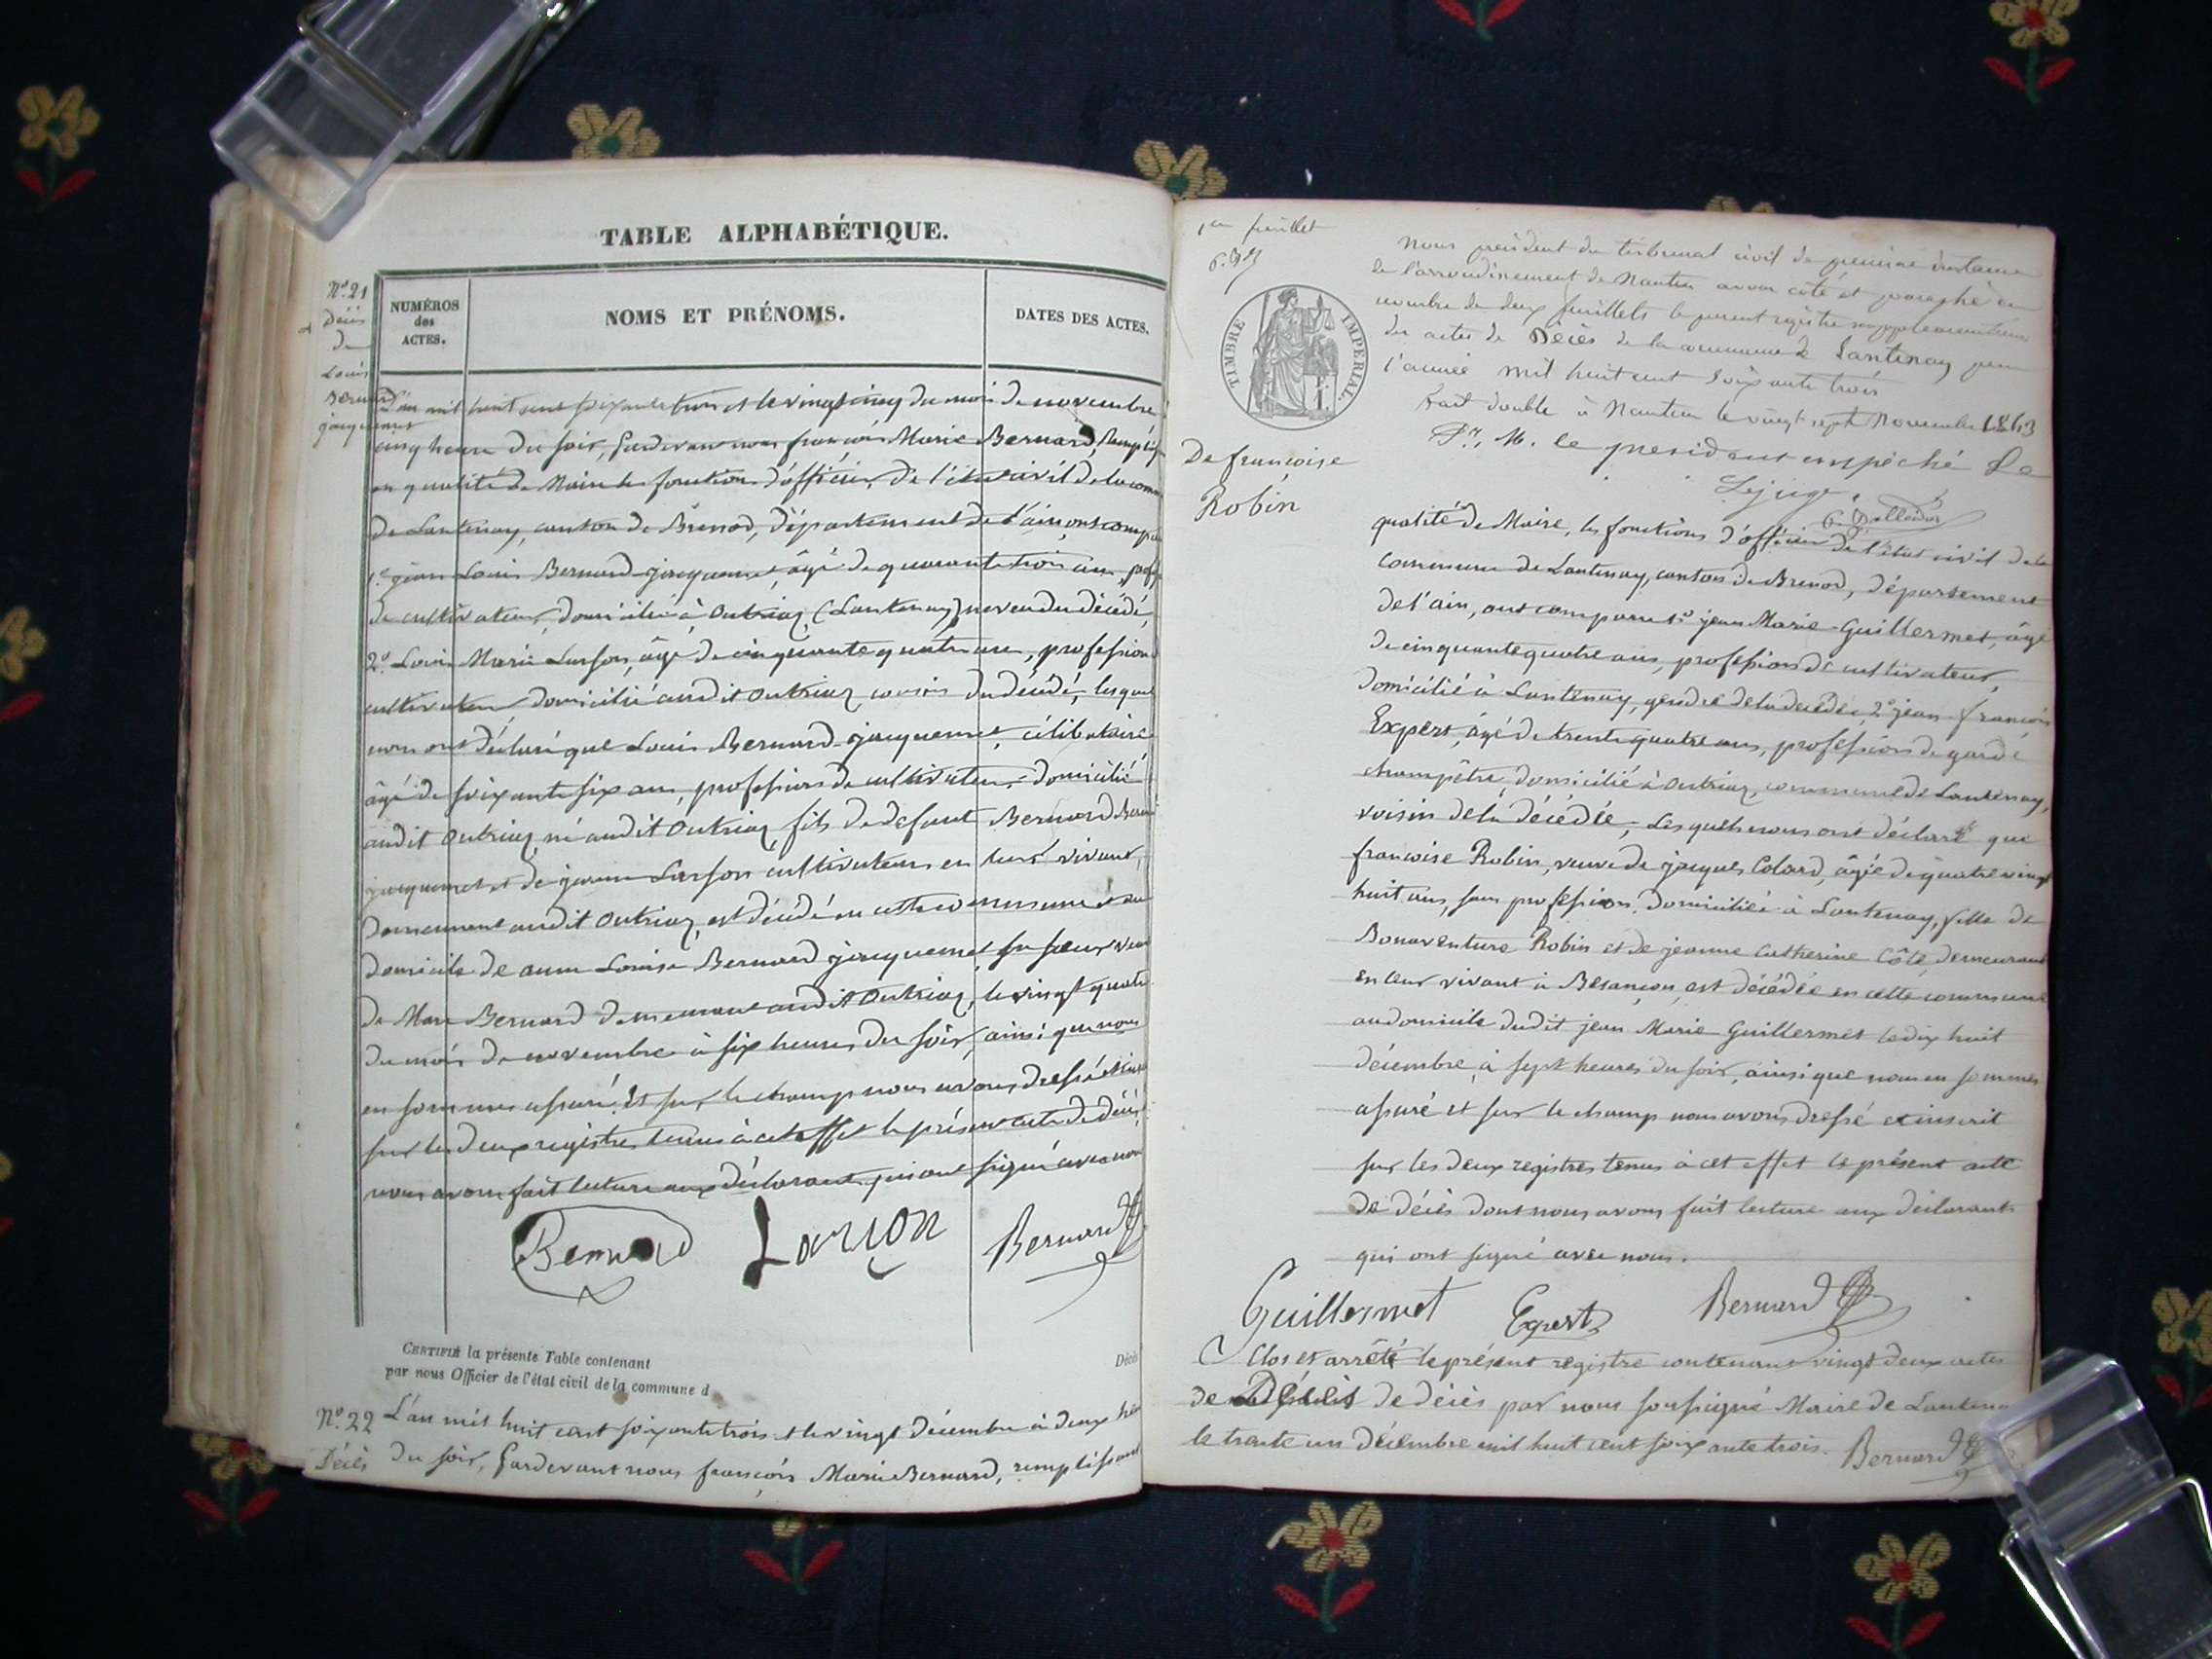 TABLE ALPHABÉTIQUE.
NUMÉROS
des
ACTES.
NOMS ET PRÉNOMS.
DATES DES ACTES.
N°. 21
Décès
De
Louis
Bernard
jacquemet
L'an mil huit cent soixante trois et le vingt cinq du mois de novembre
cinq heures du soir, Pardevant nous françois Marie Bernard, remplis
en qualité de Maire les fonctions d'officier de l'état civil de la com
de Lantenay, canton de Brénod, département de l'ain, ont comparu
1°. jean Louis Bernard-jacquemet, âgé de quarante trois ans, prof
de cultivateur, domicilié à Outriaz (Lantenay) neveu du décédé,
2°. Louis Marie Larson, âgé de cinquante quatre ans, profession
cultivateur domicilié audit Outriaz cousin du décédé, lesquels
nous ont déclaré que Louis Bernard-jacquemet, célibataire
âgé de soixante six ans, profession de cultivateur, domicilié
audit Outriaz, né audit Outriaz, fils de defunt Bernard Bern
jacquemet et de jeanne Larson cultivateurs en leur vivant,
demeurant audit Outriaz, est décédé en cette commune et au
domicile de anne Louise Bernard jacquemet sa sœur veuve
de Marc Bernard demeurant audit Outriaz, le vingt quatre
du mois de novembre à six heures du soir, ainsi que nous
en sommes assuré. Et sur le champ nous avons dressé et ins
sur les deux registres tenus à cet effet le présent acte de décès
nous avons fait lecture aux déclarants qui ont signé avec nous
Bernard Larson Bernard
CERTIFIÉ la présente Table contenant Décès
par nous Officier de l'état civil de la commune d
N°. 22 L'an mil huit cent soixante trois et le vingt décembre à deux heu
Décès du soir, Pardevant nous françois Marie Bernard, remplissant
1er feuillet
TIMBRE IMPERIAL
Nous president du tribunal civil de première instance
de l'arrondissement de Nantua avons coté et paraphé en
nombre de deux feuillets le present registre supplémentaire
des actes de Décès de la commune de Lantenay pour
l'année mil huit cent soixante trois
Fait double à Nantua le vingt sept Novembre 1863
Pr. M. le president empêché Le
Lejuge,
De françoise
Robin
qualité de Maire, les fonctions d'officier de l'état civil de la
commune de Lantenay, canton de Brenod, département
de l'ain, ont comparu 1° jean Marie Guillermet, âgé
de cinquante quatre ans, profession de cultivateur,
domicilié à Lantenay, gendre de la décédée 2° jean françois
Expert, âgé de trente quatre ans, profession de garde
champêtre, domicilié à Outriaz, commune de Lantenay,
voisin de la décédée, Lesquels nous ont déclaré que
françoise Robin, veuve de jacques Colard, âgée de quatre vingt
huit ans, sans profession, domiciliée à Lantenay, fille de
Bonaventure Robin et de jeanne Catherine Côte, demeurant
en leur vivant à Besançon, est décédée en cette commune
au domicile dudit jean Marie Guillermet le dix huit
décembre à sept heures du soir, ainsi que nous en sommes
assuré et sur le champ nous avons dressé et inscrit
sur les deux registres tenus à cet effet le présent acte
de décès dont nous avons fait lecture aux déclarants
qui ont signé avec nous.
Guillermet Expert Bernard
Clos et arrêté le présent registre contenant vingt deux actes
de décès par nous soussigné Maire de Lantenay
le trente un décembre mil huit cent soixante trois. Bernard